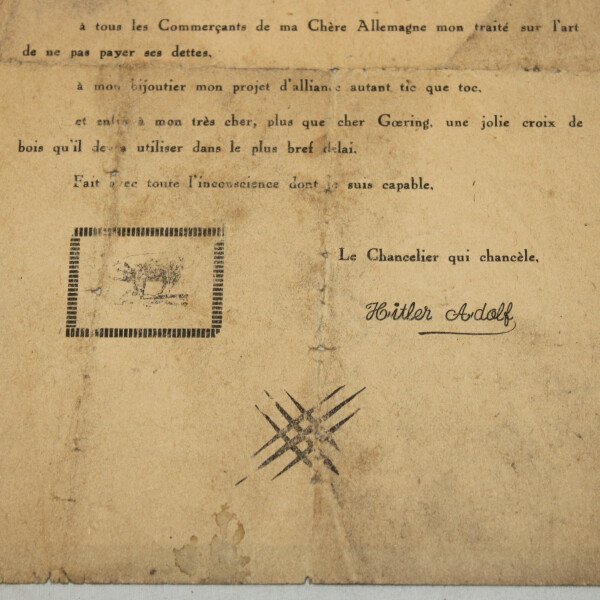 à tous les Commerçants de ma Chère Allemagne mon traité sur l'art
de ne pas payer ses dettes.
à mon bijoutier mon projet d'alliance autant tic que toc.
et enfin à mon très cher, plus que cher Gœring, une jolie croix de
bois qu'il devra utiliser dans le plus bref délai.
Fait avec toute l'inconscience dont je suis capable.
Le Chancelier qui chancèle,
Hitler Adolf